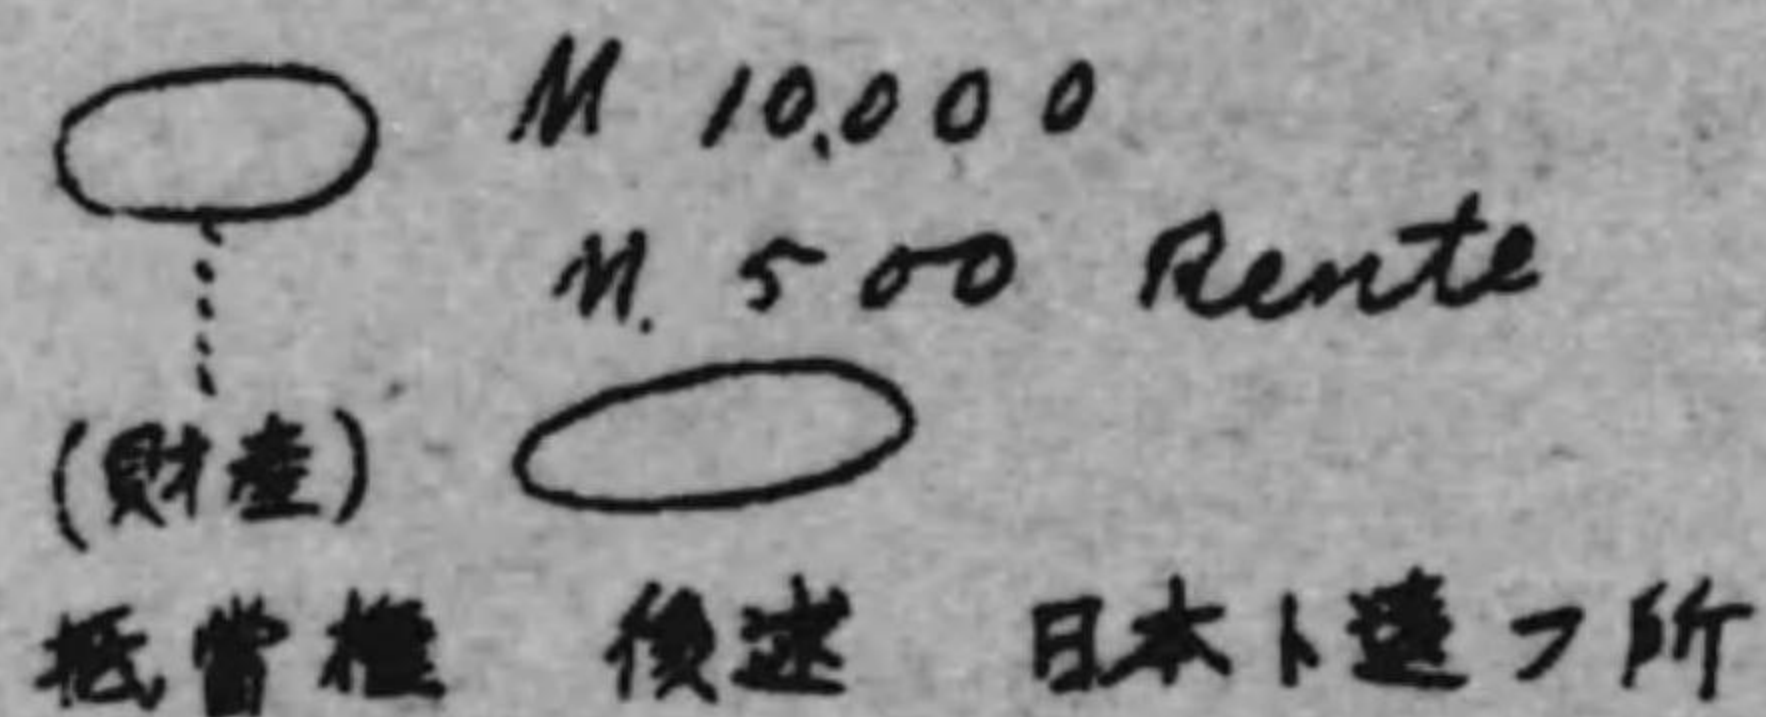 M 10,000
M. 500 Rente
(財産)
抵當權 後述 日本ト違フ所